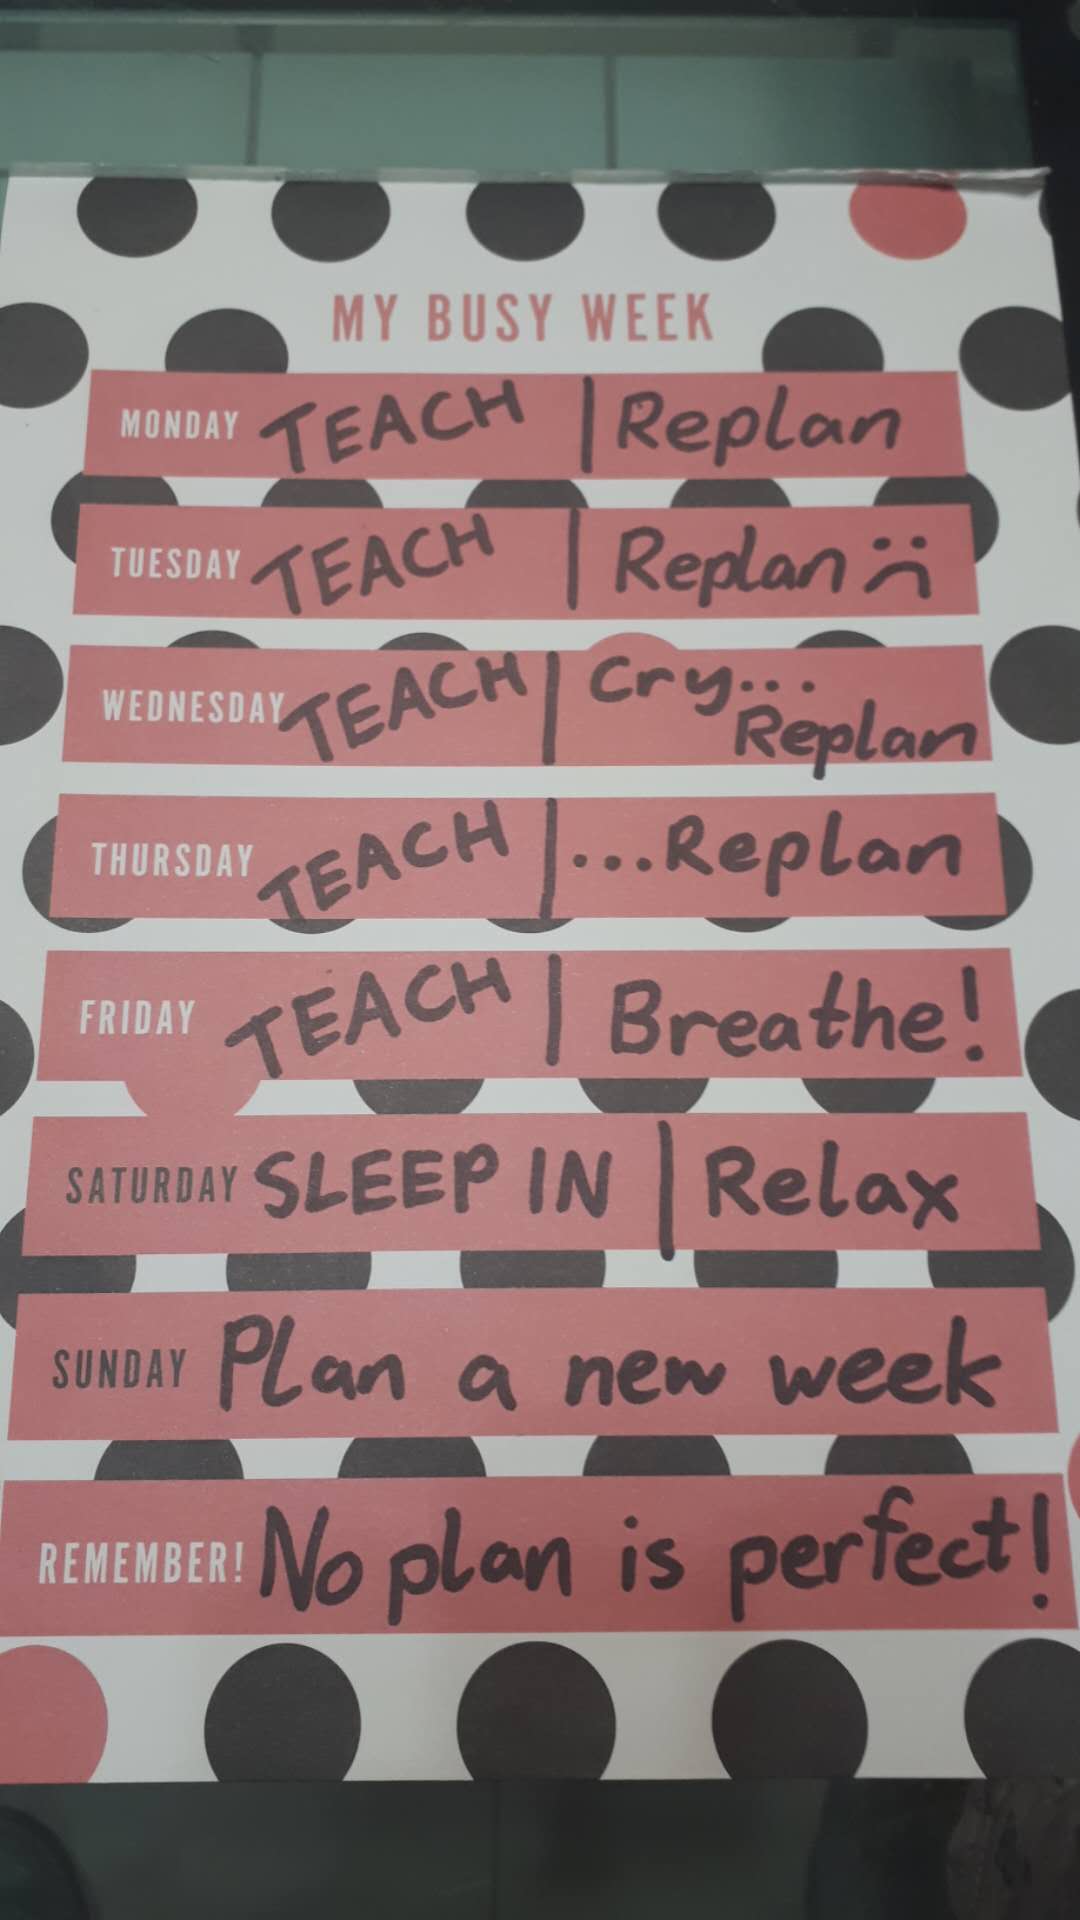 MY BUSY WEEK
MONDAY TEACH | Replan
TUESDAY TEACH | Replan :(
WEDNESDAY TEACH | Cry...
Replan
THURSDAY TEACH | ...Replan
FRIDAY TEACH | Breathe!
SATURDAY SLEEP IN | Relax
SUNDAY Plan a new week
REMEMBER! No plan is perfect!